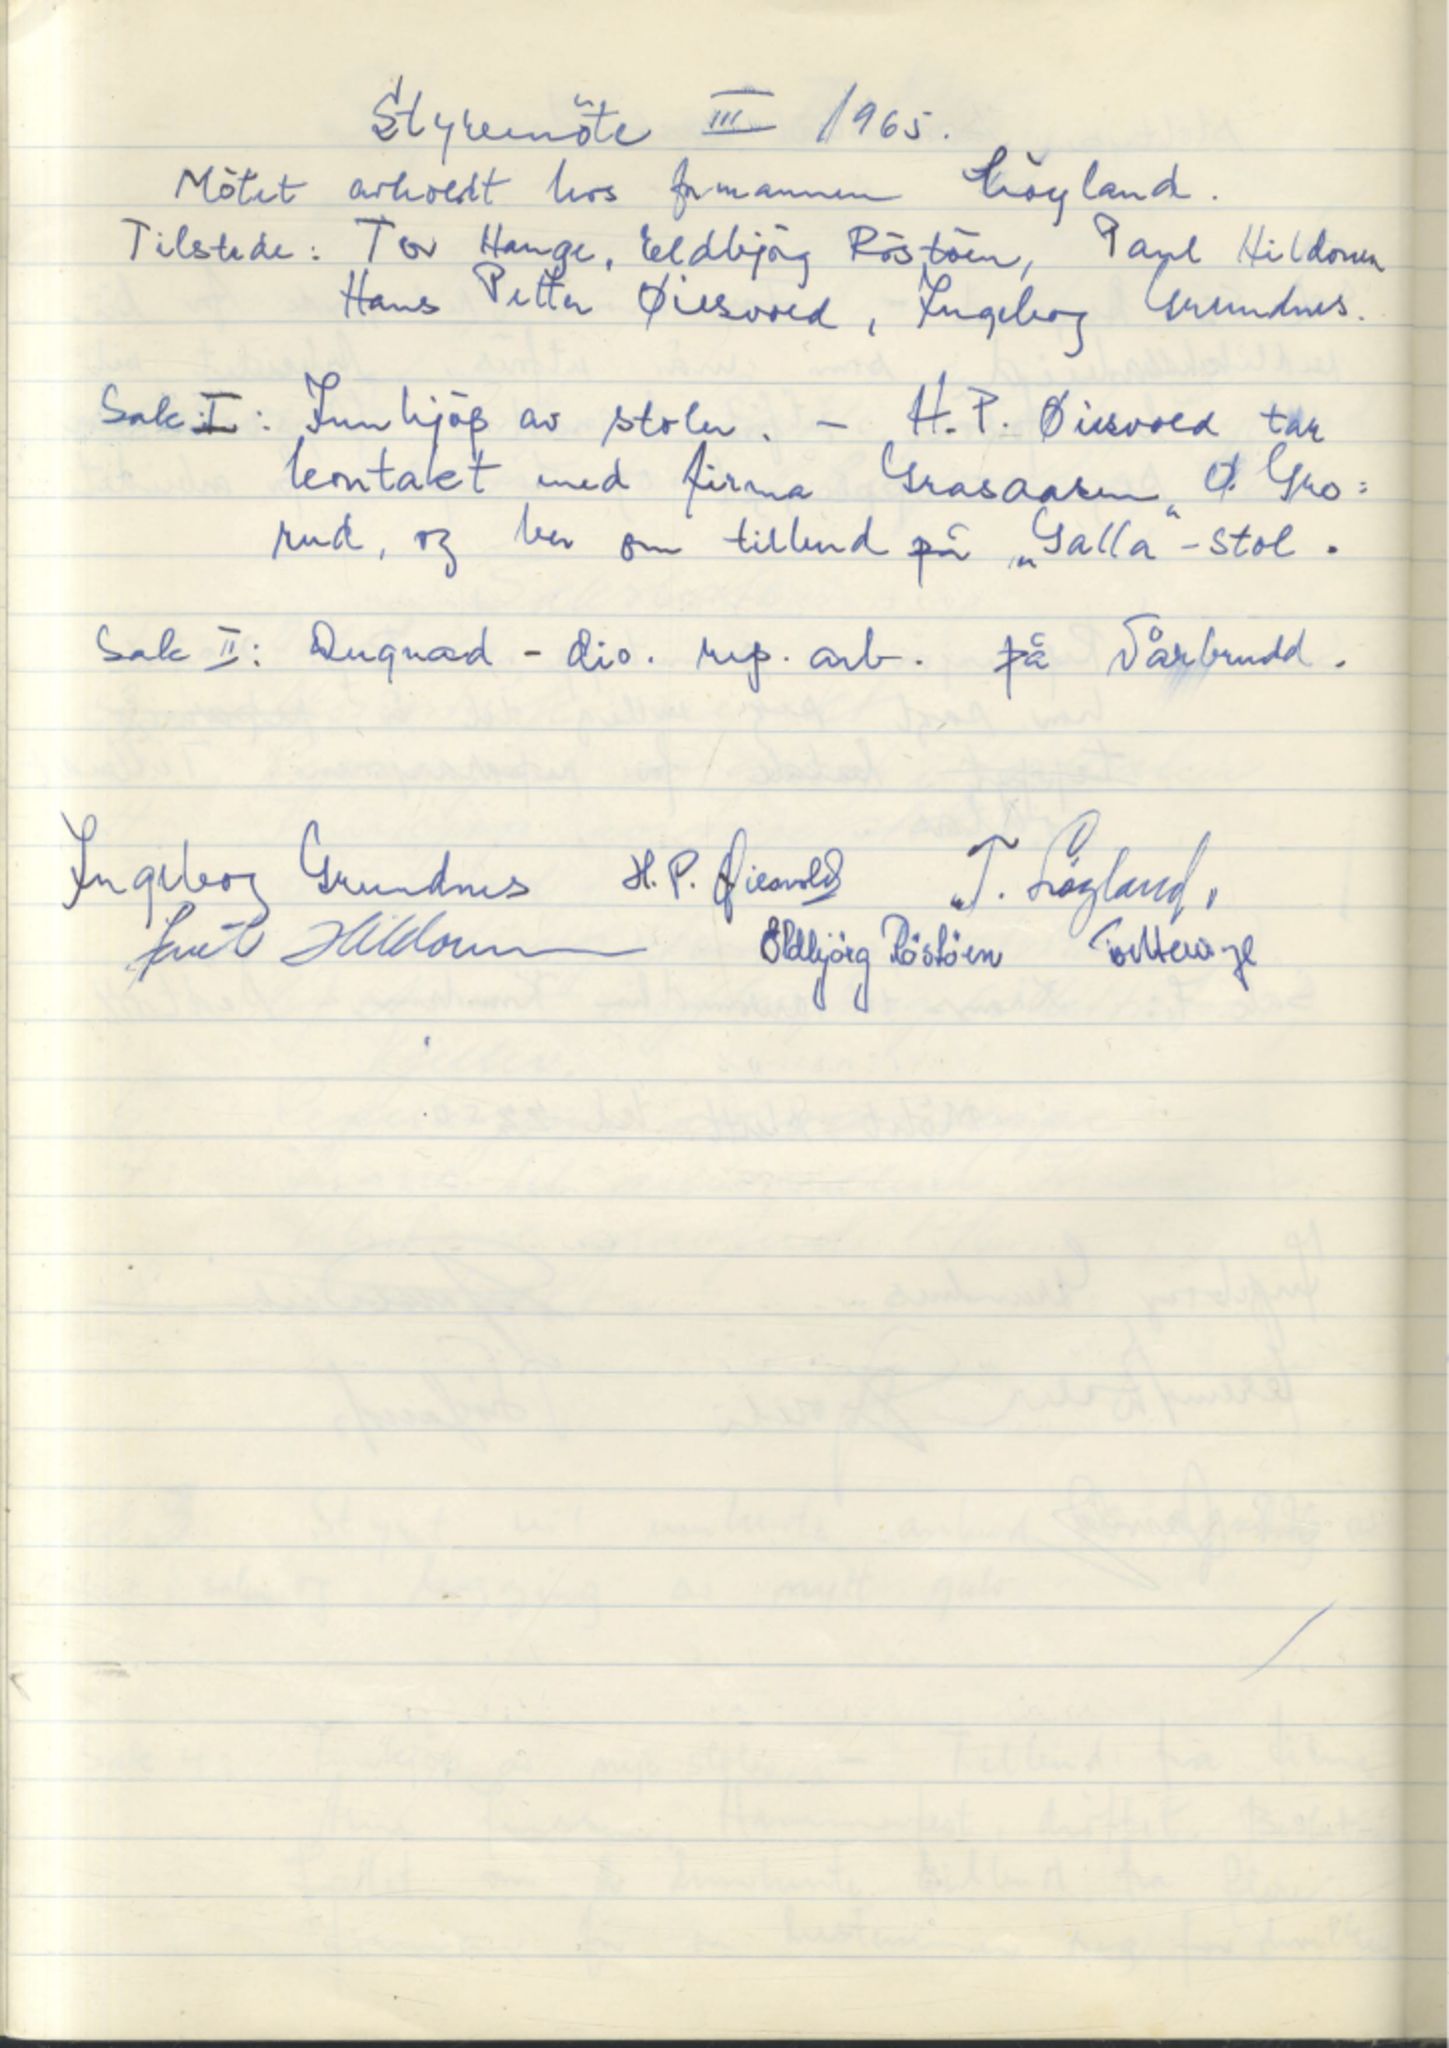 Styremöte III 1965.
Mötet avholdt hos formannen Lögland.
Tilstede: Tor Hauge, Eldbjörg Röstöen, Paul Hildonen
Hans Petter Øiesvold, Ingeborg Grundnes.
Sak I: Innkjöp av stoler. - H.P. Øiesvold tar
kontakt med firma Grasaasen, Ö. Gro=
rud, og ber om tilbud på „Galla"-stol.
Sak II: Dugnad - div. rep. arb. på Vårbrudd.
Ingeborg Grundnes H.P. Øiesvold T. Lögland,
Hildonen Eldbjörg Röstöen Tor Hauge